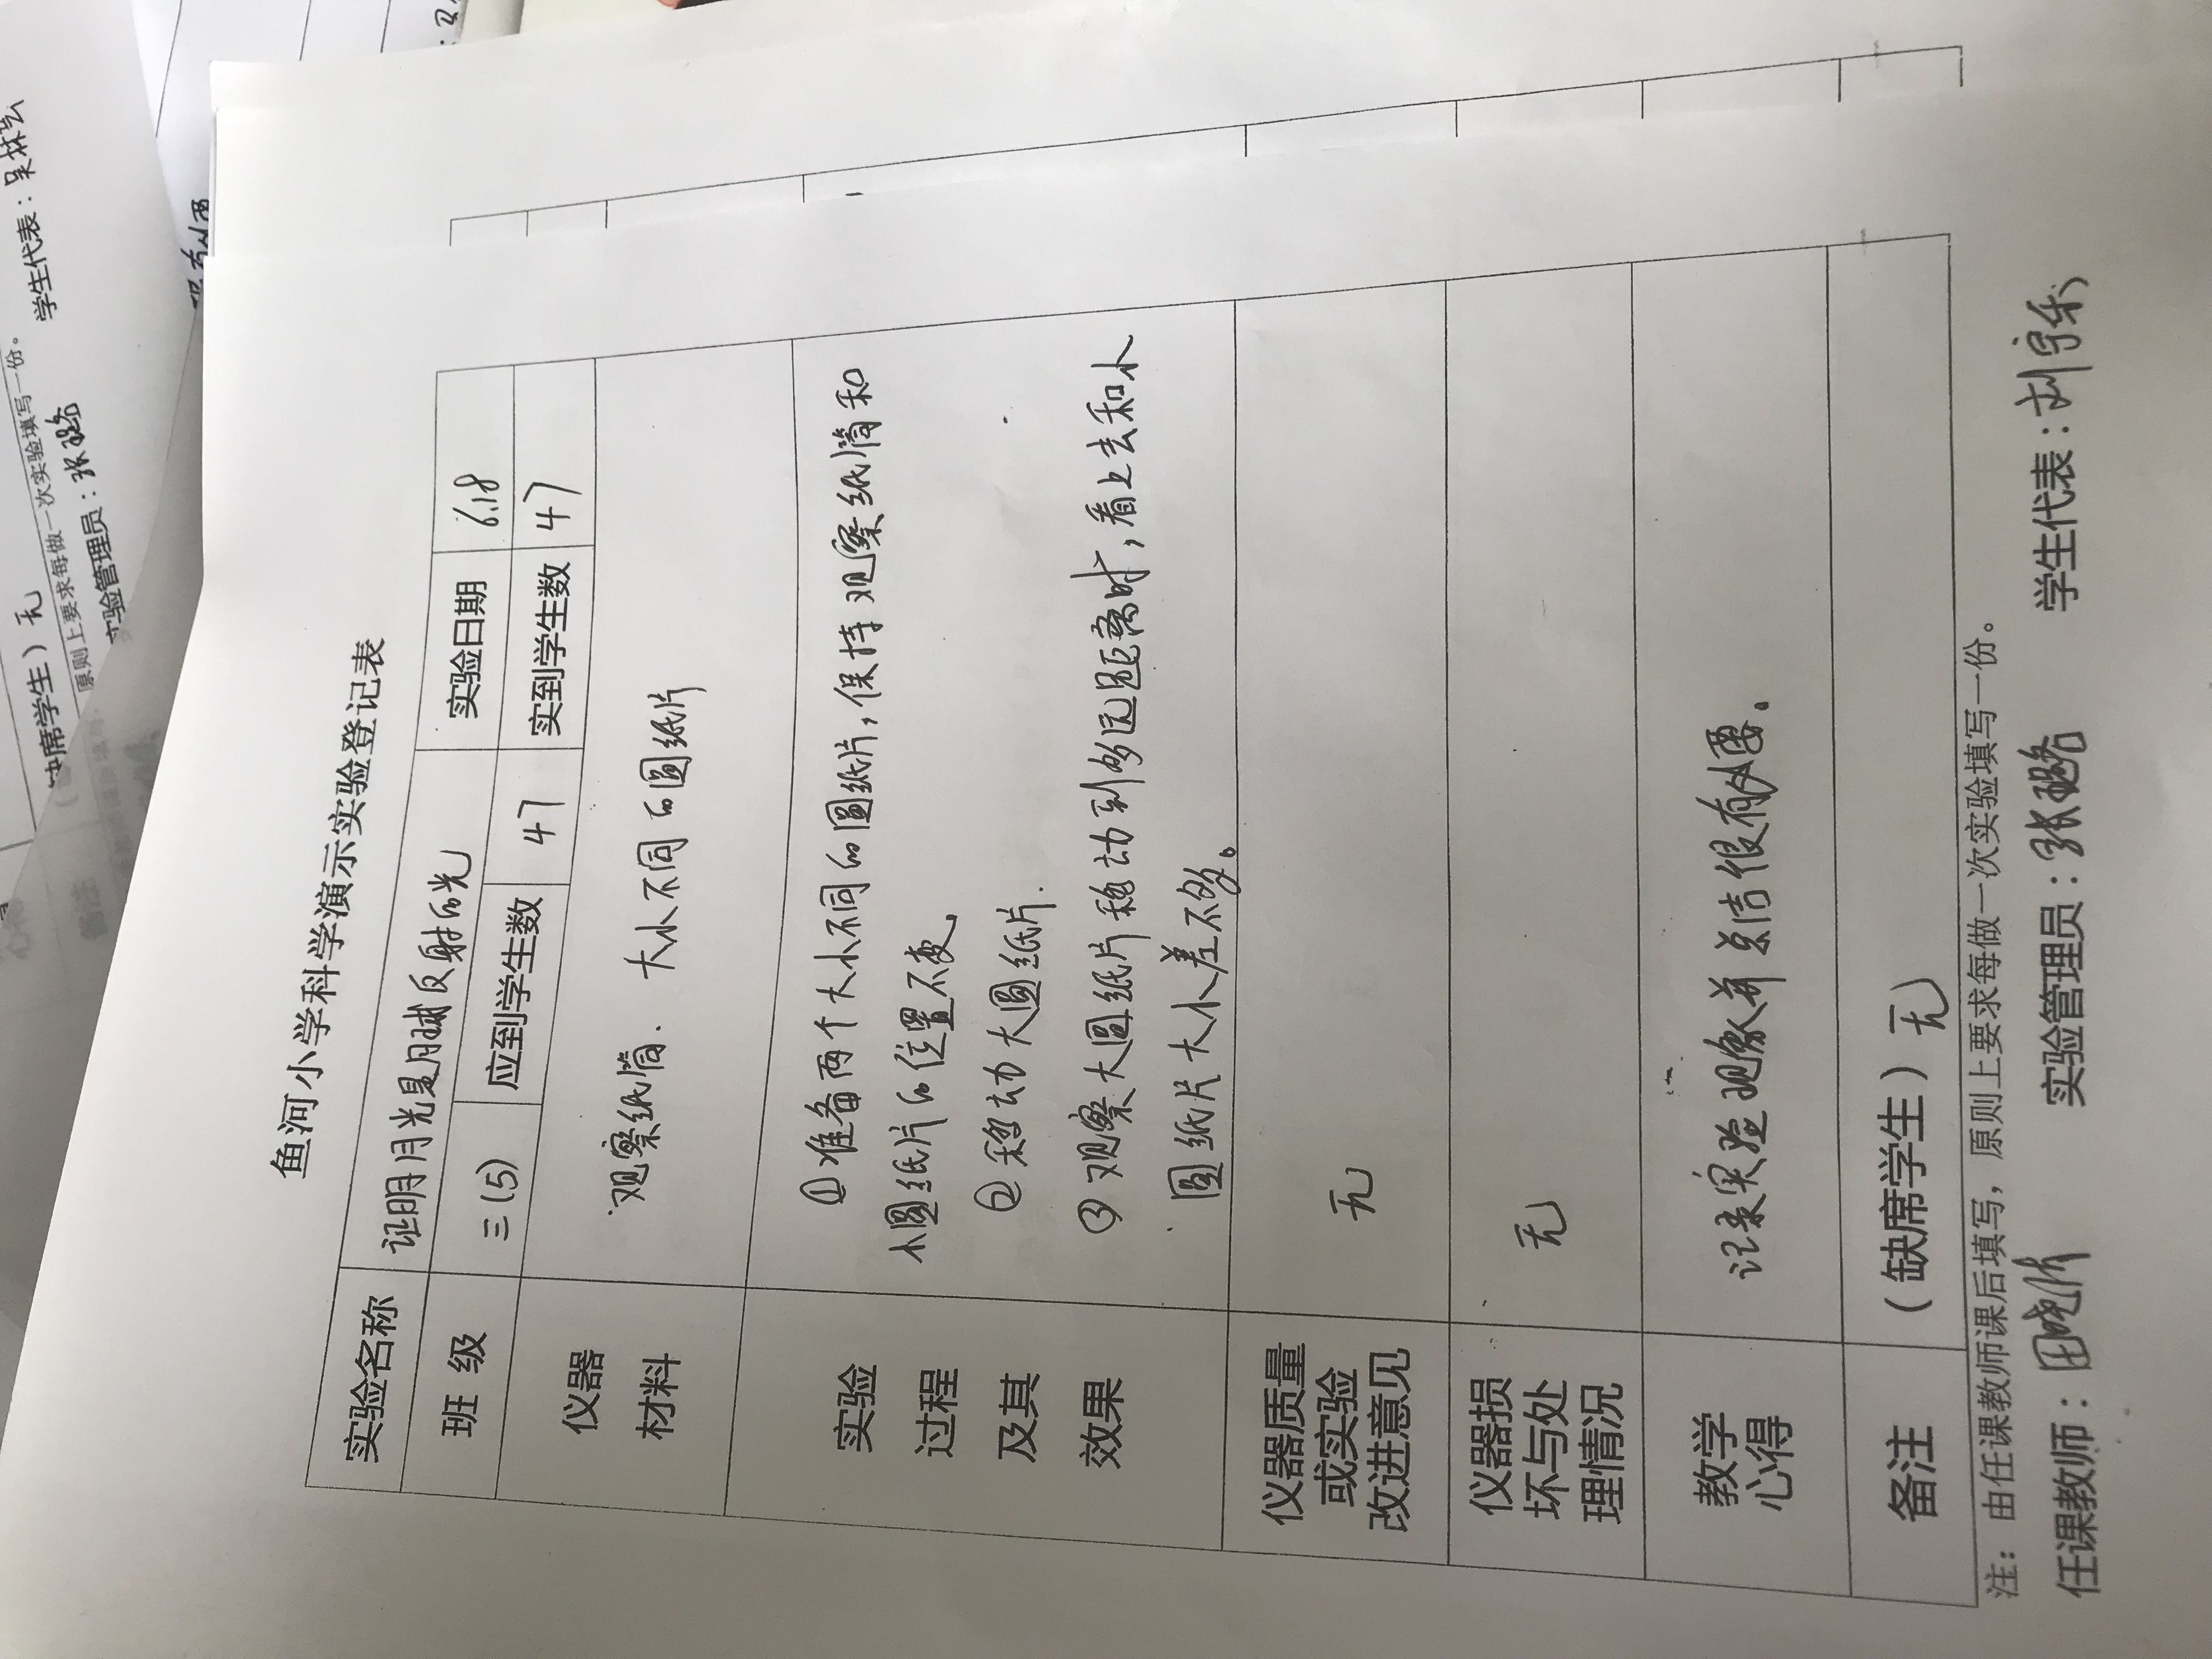 鱼河小学科学演示实验登记表
实验名称 证明月光是月球反射的光
班 级 三(5) 应到学生数 47 实验日期 6.18
实到学生数 47
仪器
材料
观察纸筒、大小不同的圆纸片
实验
过程
及其
效果
①准备两个大小不同的圆纸片,保持观察纸筒和
小圆纸片的位置不变
②移动大圆纸片.
③观察大圆纸片移动到够远距离时,看上去和小
圆纸片大小差不够。
仪器质量
或实验
改进意见
无
仪器损
坏与处
理情况
无
教学
心得
记录实验现象并总结很有必要。
备注 (缺席学生)无
注:由任课教师课后填写,原则上要求每做一次实验填写一份。
任课教师: 实验管理员:张璐 学生代表:
缺席学生)无
原则上要求每做一次实验填写一份。
实验管理员:张璐 学生代表: